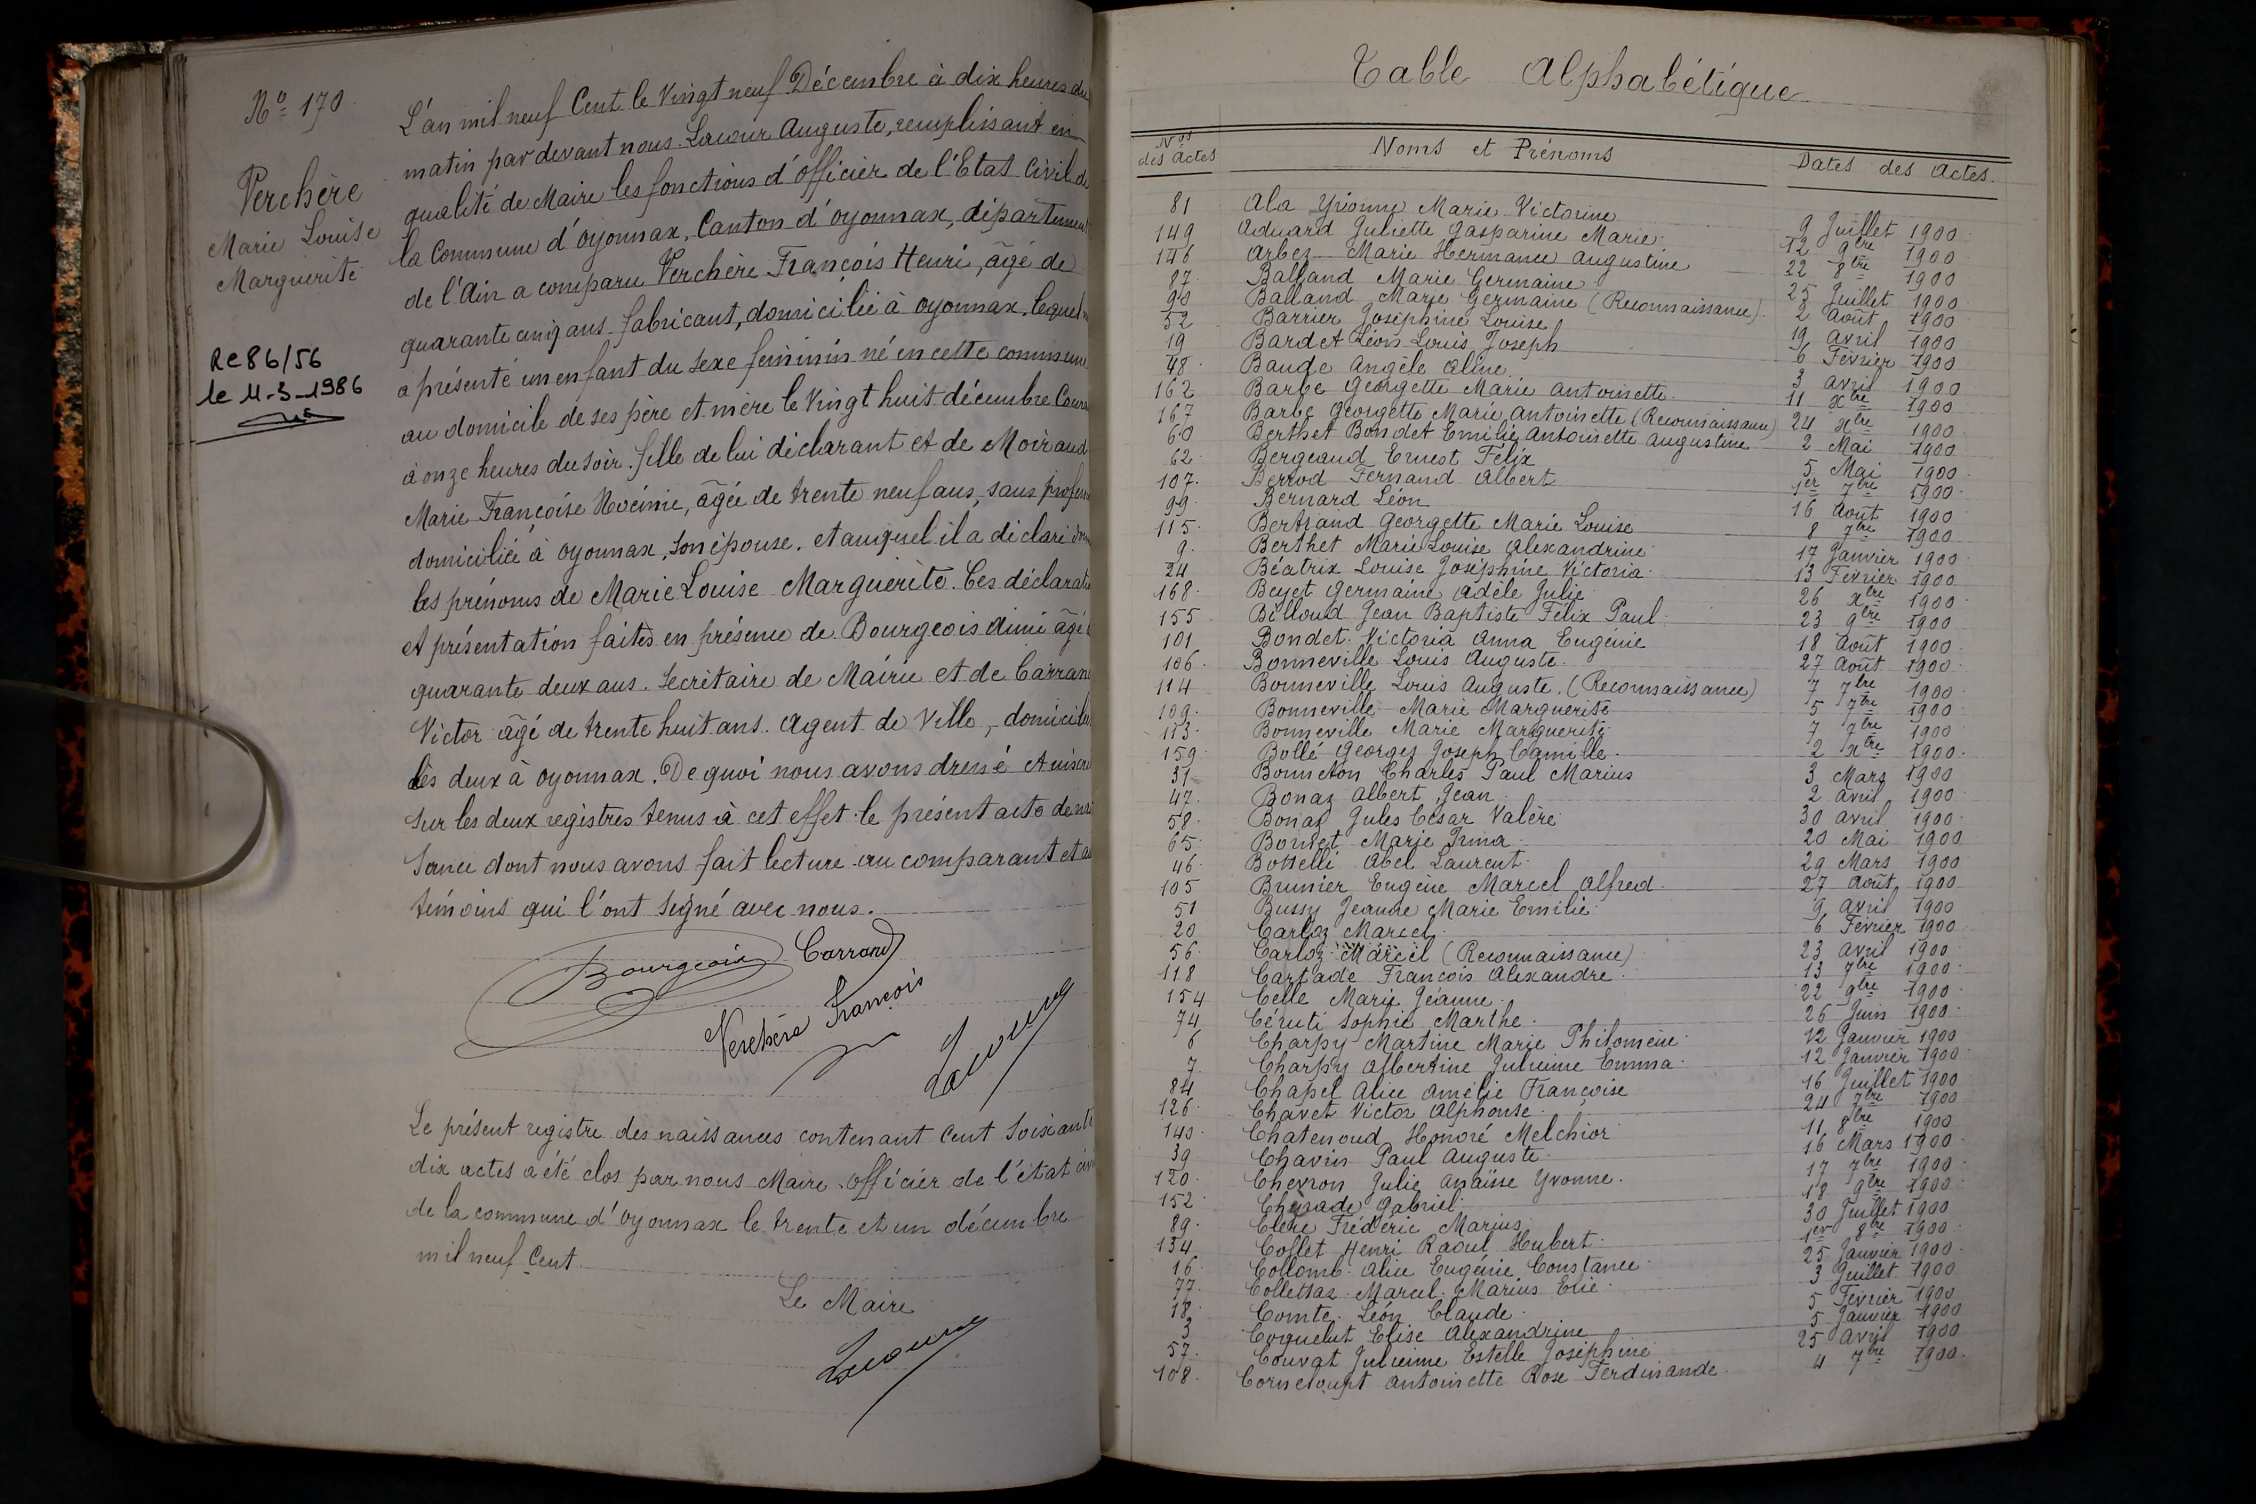 No 170
Verchère
Marie Louise
Marguerite
RC 86/56
le 11-3-1986
L'an mil neuf Cent le Vingt neuf Décembre à dix heures du
matin par devant nous Lacour Auguste, remplissant en
qualité de Maire les fonctions d'officier de l'Etat Civil de
la Commune d'Oyonnax, Canton d'Oyonnax, département
de l'Ain a comparu Verchère François Henri, âgé de
quarante cinq ans fabricant, domicilié à Oyonnax, lequel
a présenté un enfant du sexe féminin né en cette commune
au domicile de ses père et mère le Vingt huit décembre Cour
à onze heures du soir fille de lui déclarant et de Moiraud
Marie Françoise Noémie, âgée de trente neuf ans, sans profes
domiciliée à Oyonnax, son épouse. et auquel il a déclaré
les prénoms de Marie Louise Marguerite. Ces déclarat
et présentation faites en présence de Bourgeois Aimé âgé
quarante deux ans. Secrétaire de Mairie et de Carrand
Victor âgé de trente huit ans. Agent de Ville, domicilié
les deux à Oyonnax. De quoi nous avons dressé et inscri
sur les deux registres tenus à cet effet le présent acte de nai
sance dont nous avons fait lecture au comparant et a
témoins qui l'ont signé avec nous.
Bourgeois Carrand
Verchère François
Lacour
Le présent registre des naissances contenant cent soixante
dix actes a été clos par nous Maire Officier de l'état civ
de la commune d'Oyonnax le trente et un décembre
mil neuf Cent
Le Maire
Lacour
Table Alphabétique
Nos des Actes Noms et Prénoms Dates des Actes
81 Ala Yvonne Marie Victorine 9 Juillet 1900
149 Aduard Juliette Gasparine Marie 12 9bre 1900
146 Arbez Marie Hermance Augustine 22 8bre 1900
87 Balland Marie Germaine 25 Juillet 1900
90 Balland Marie Germaine (Reconnaissance) 2 Août 1900
52 Barrier Joséphine Louise 19 Avril 1900
19 Bardet Léon Louis Joseph 6 Février 1900
48 Baude Angèle Aline 3 Avril 1900
162 Barbe Georgette Marie Antoinette 11 xbre 1900
167 Barbe Georgette Marie Antoinette (Reconnaissance) 24 xbre 1900
60 Berthet Bondet Emilie Antoinette Augustine 2 Mai 1900
62 Bergeaud Ernest Félix 5 Mai 1900
107 Berrod Fernand Albert 1er 7bre 1900
99 Bernard Léon 16 Août 1900
115 Bertrand Georgette Marie Louise 8 7bre 1900
9 Berthet Marie Louise Alexandrine 17 Janvier 1900
24 Béatrix Louise Joséphine Victoria 13 Février 1900
168 Beyet Germaine Adèle Julie 26 xbre 1900
155 Billoud Jean Baptiste Félix Paul 23 9bre 1900
101 Bondet Victoria Anna Eugénie 18 Août 1900
106 Bonneville Louis Auguste 27 Août 1900
114 Bonneville Louis Auguste (Reconnaissance) 7 7bre 1900
109 Bonneville Marie Marguerite 5 7bre 1900
113 Bonneville Marie Marguerite 7 7bre 1900
159 Bollé Georges Joseph Camille 2 xbre 1900
31 Bonneton Charles Paul Marius 3 Mars 1900
47 Bonaz Albert Jean 2 Avril 1900
58 Bonaz Jules César Valère 30 Avril 1900
65 Bouvet Marie Irma 20 Mai 1900
46 Bottelli Abel Laurent 29 Mars 1900
105 Brunier Eugène Marcel Alfred 27 Août 1900
51 Bussy Jeanne Marie Emilie 9 Avril 1900
20 Carloz Marcel 6 Février 1900
56 Carloz Marcel (Reconnaissance) 23 Avril 1900
118 Cartade François Alexandre 13 7bre 1900
154 Celle Marie Jeanne 22 9bre 1900
74 Céruti Sophie Marthe 26 Juin 1900
6 Charpy Martine Marie Philomène 12 Janvier 1900
7 Charpy Albertine Julienne Emma 12 Janvier 1900
84 Chapel Alice Amélie Françoise 16 Juillet 1900
126 Chavet Victor Alphonse 24 7bre 1900
140 Chatenoud Honoré Melchior 11 8bre 1900
39 Chavin Paul Auguste 16 Mars 1900
120 Chevron Julie Anaïsse Yvonne 17 7bre 1900
152 Gabriel 18 9bre 1900
89 Clerc Frédéric Marius 30 Juillet 1900
134 Collet Henri Raoul Hubert 1er 8bre 1900
16 Collomb Alice Eugénie Constance 25 Janvier 1900
77 Collettaz Marcel Marius Elie 3 Juillet 1900
18 Comte Léon Claude 5 Février 1900
3 Coquelut Elise Alexandrine 5 Janvier 1900
57 Couvat Julienne Estelle Joséphine 25 Avril 1900
108 Cornecoupt Antoinette Rose Ferdinande 4 7bre 1900